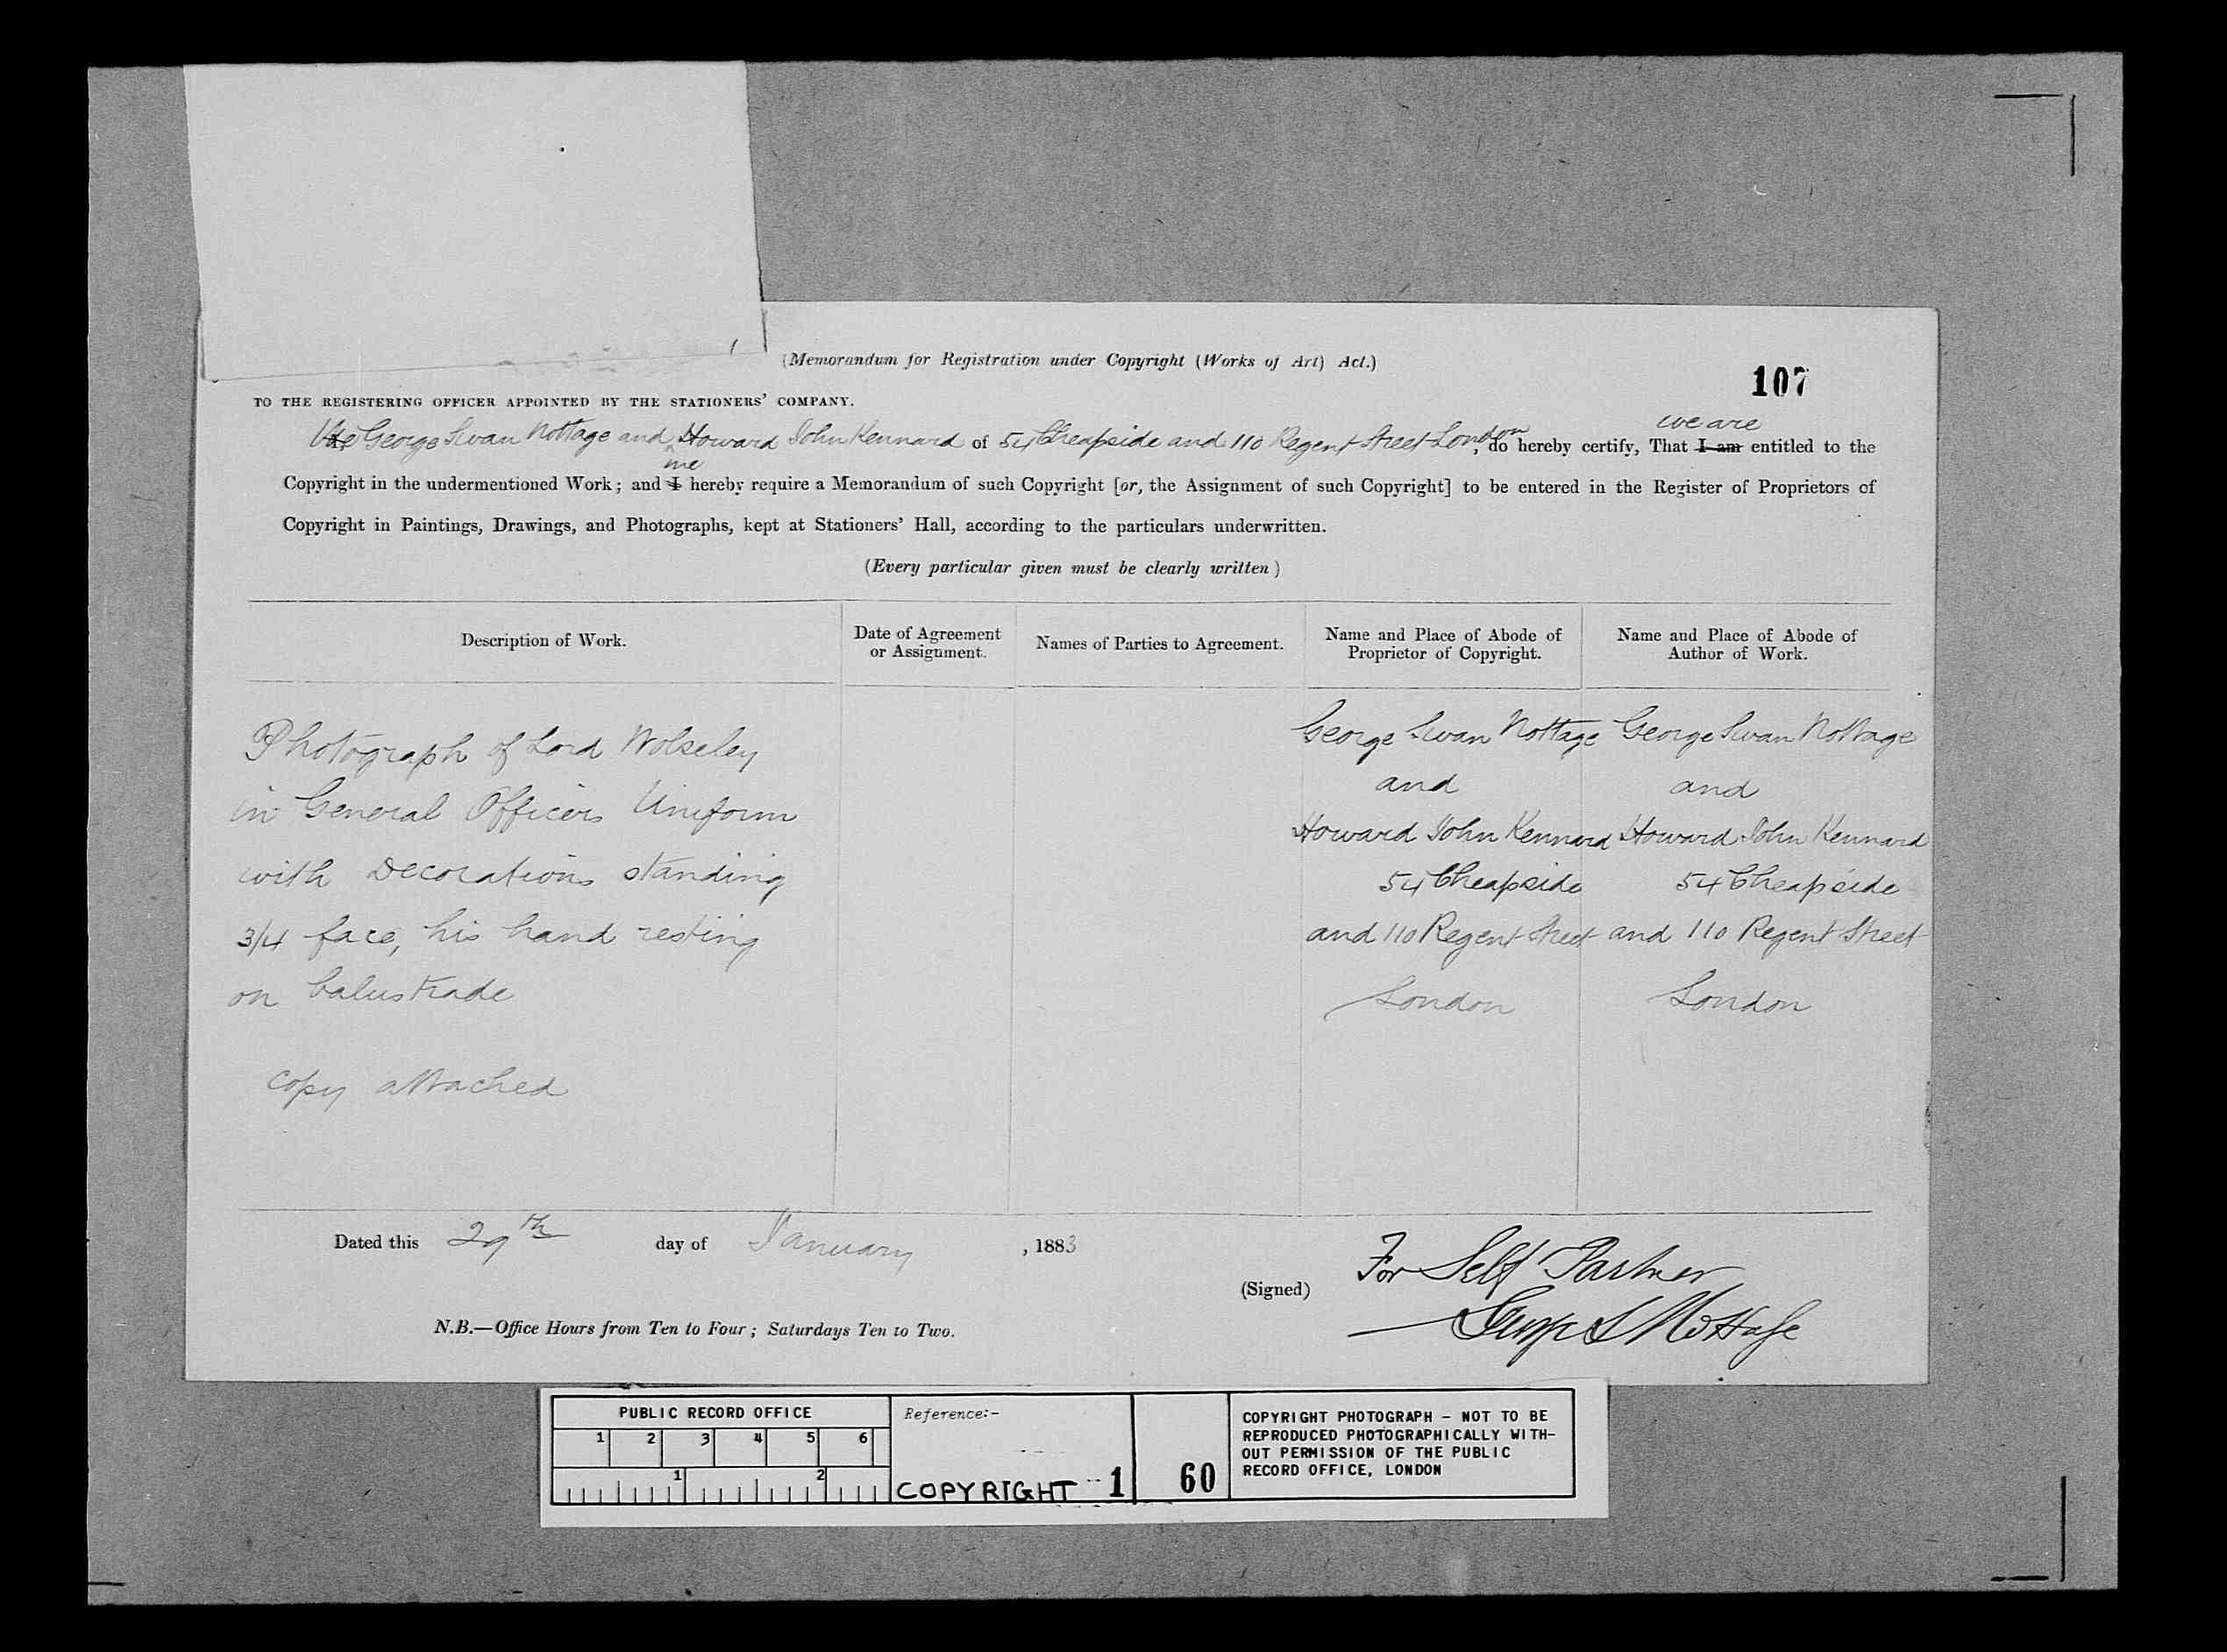 (Memorandum for Registration under Copyright (Works of Art) Act.)
107
TO THE REGISTERING OFFICER APPOINTED BY THE STATIONERS' COMPANY.
we are
We George Swan Nottage and Howard John Kennard of 54 Cheapside and 110 Regent Street London, do hereby certify, That I am entitled to the
we
Copyright in the undermentioned Work; and I hereby require a Memorandum of such Copyright [or, the Assignment of such Copyright] to be entered in the Register of Proprietors of
Copyright in Paintings, Drawings, and Photographs, kept at Stationers' Hall, according to the particulars underwritten.
(Every particular given must be clearly written)
Description of Work.
Date of Agreement
or Assignment.
Names of Parties to Agreement.
Name and Place of Abode of
Proprietor of Copyright.
Name and Place of Abode of
Author of Work.
Photograph of Lord Wolseley
in General Officers Uniform
with Decorations standing
3/4 face, his hand resting
on balustrade
Copy attached
George Swan Nottage
and
Howard John Kennard
54 Cheapside
and 110 Regent Street
London
George Swan Nottage
and
Howard John Kennard
54 Cheapside
and 110 Regent Street
London
Dated this 29th day of January, 1883
(Signed) For Self Partner
George S Nottage
N.B.—Office Hours from Ten to Four; Saturdays Ten to Two.
PUBLIC RECORD OFFICE
1 2 3 4 5 6
1 2
Reference:-
COPYRIGHT 1
60
COPYRIGHT PHOTOGRAPH - NOT TO BE
REPRODUCED PHOTOGRAPHICALLY WITH-
OUT PERMISSION OF THE PUBLIC
RECORD OFFICE, LONDON